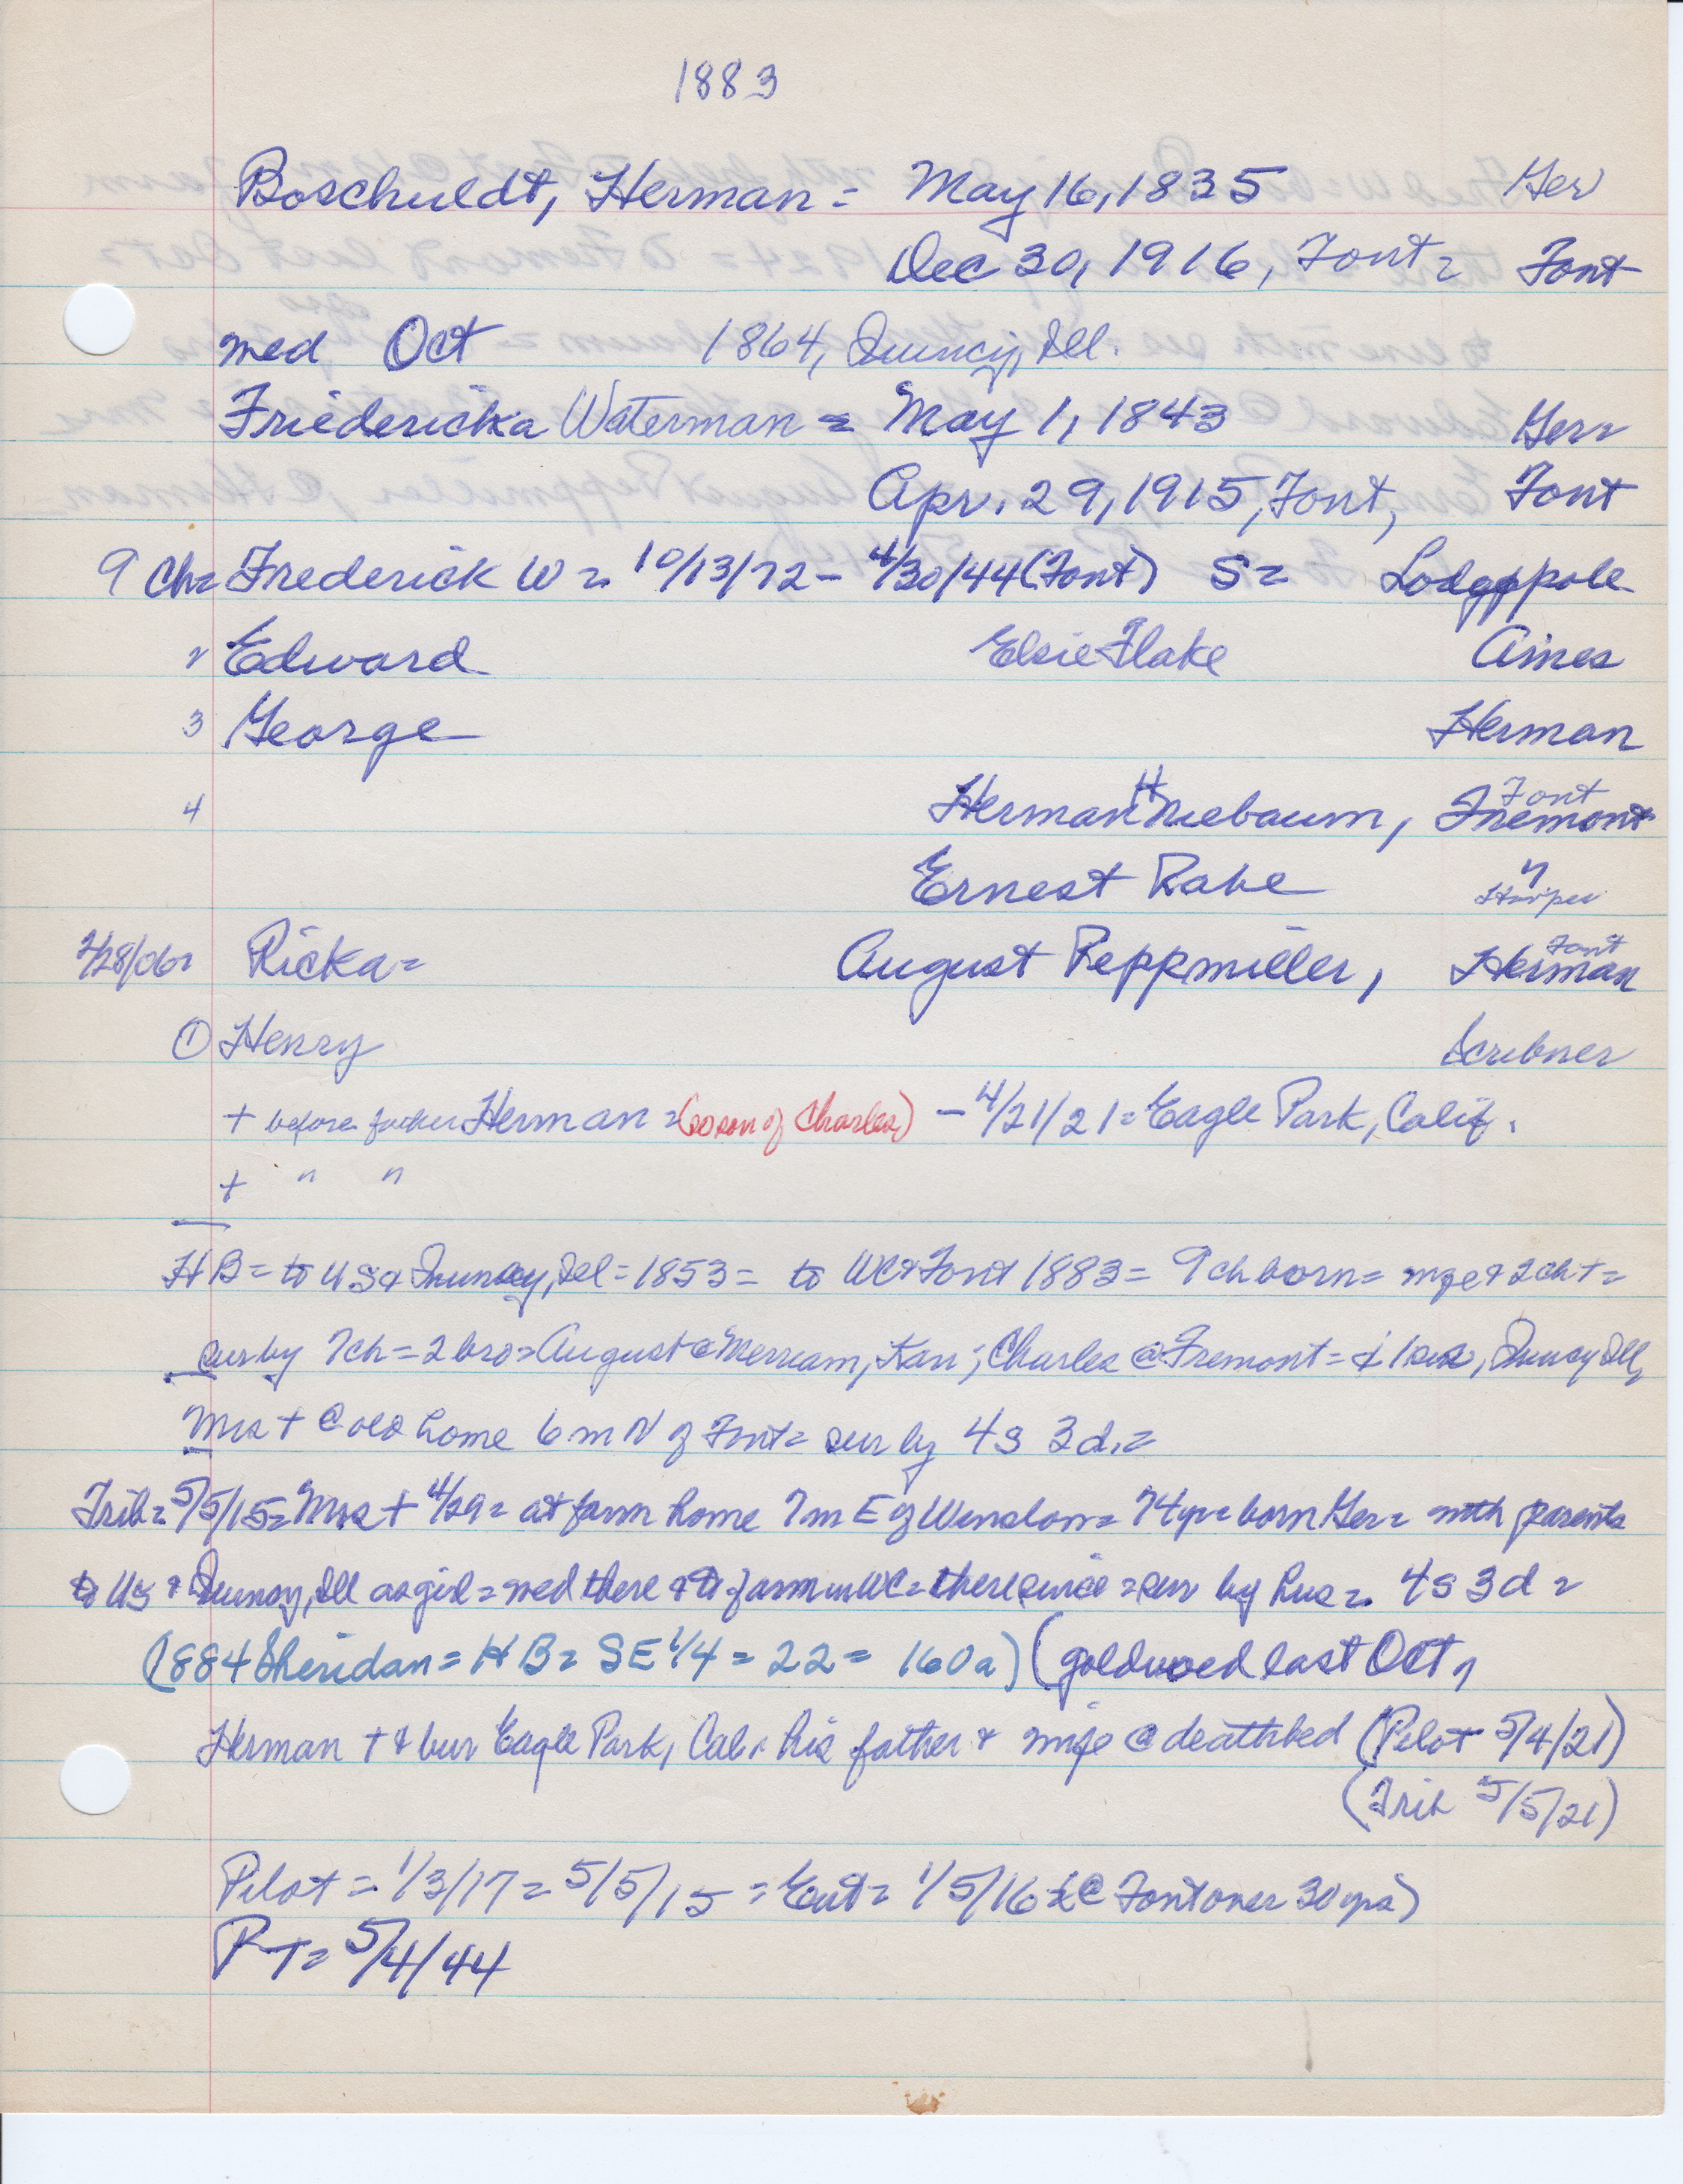 1883
Boschuldt, Herman = May 16, 1835 Ger
Dec 30, 1916, Font = Font
med Oct 1864, Quincy, Ill.
Friedericka Waterman = May 1, 1843 Ger=
Apr. 29, 1915, Font, Font
9 Ch= Frederick W = 10/13/72 - 4/30/44 (Font) S = Lodgepole
2 Edward Elsie Flake Aines
3 George Herman
4 Herman H Niebaum, Font Fremont
Ernest Rabe "
2/28/06= Ricka= August Peppmiller, Font Herman
① Henry Scribner
+ before father Herman = (so son of Charles) - 4/21/21 = Eagle Park, Calif.
+ " "
HB = to US & Quincy, Ill = 1853 = to WC & Font 1883 = 9 ch born = wife & 2 ch + =
sur by 7 ch = 2 bro = August @ Merriam, Kan; Charles @ Fremont = & 1 sis, Quincy Ill,
Mrs + @ old home 6 m N of Font = sur by 4 s 3 d. =
Trib = 5/5/15 = Mrs + 4/29 = at farm home 7 m E of Winslow = 74 yr = born Ger = with parents
to US & Quincy, Ill as girl = med there & to farm in WC = there since = sur by hus = 4 s 3 d =
(1884 Sheridan = HB = SE 1/4 = 22 = 160a) (gold wed last Oct,
Herman + & bur Eagle Park, Cal. his father & wife @ deathbed (Pilot 5/4/21)
(Trib 5/5/21)
Pilot = 1/3/17 = 5/5/15 = Ent = 1/5/16 @ Font over 30 yrs)
P-T = 5/4/44